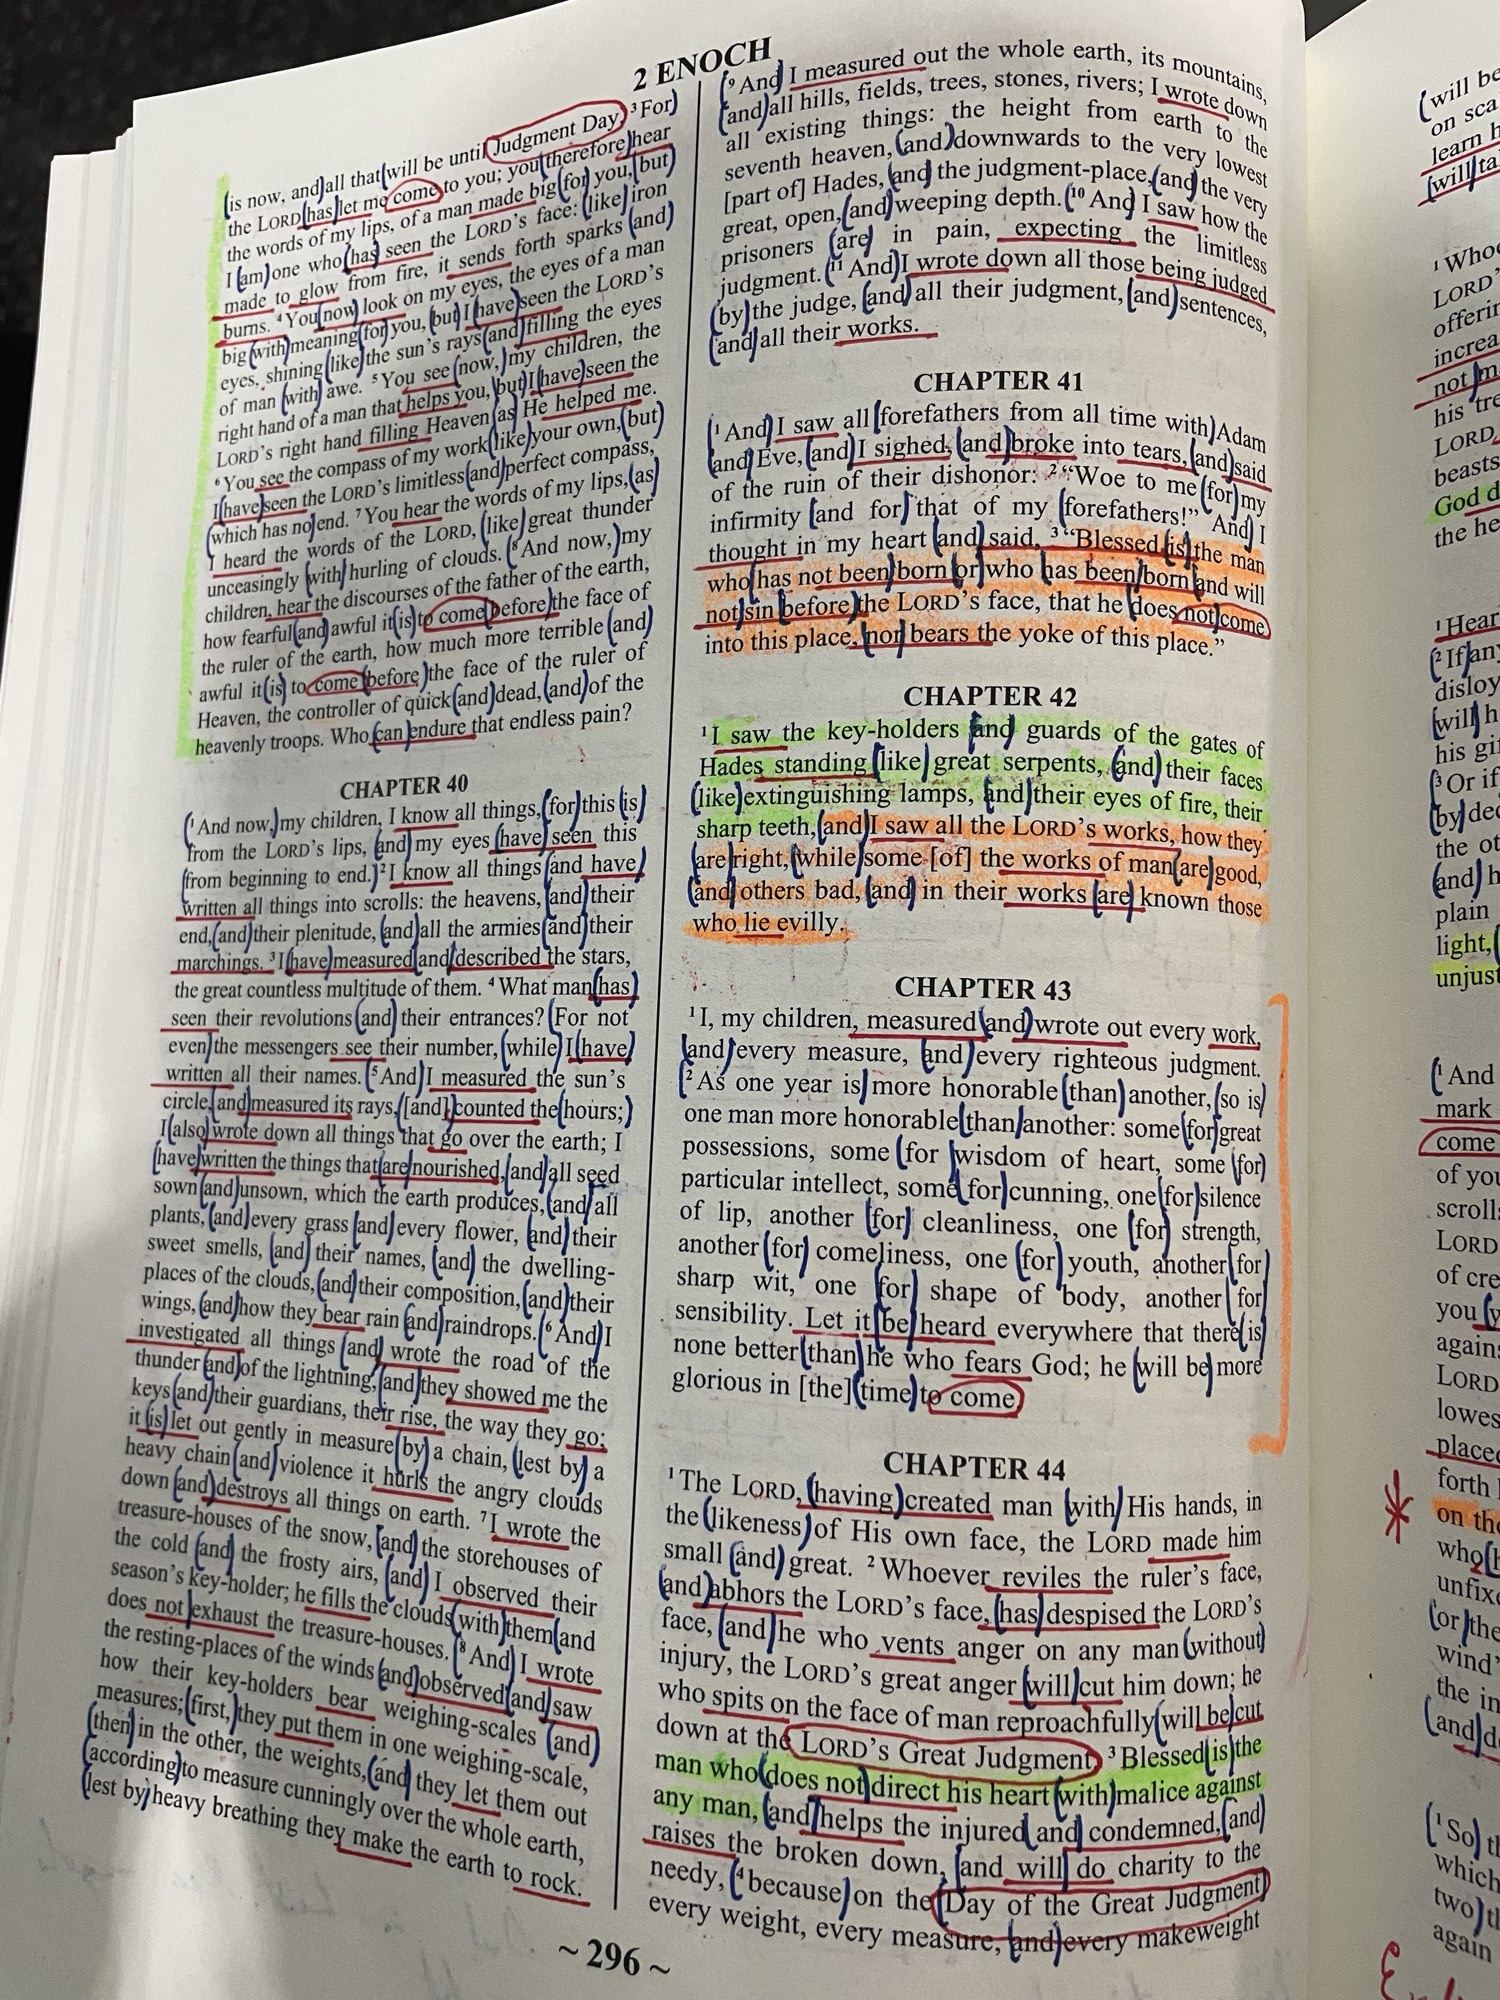 2 ENOCH
is now, and all that will be until Judgment Day. ³For
the LORD has let me come to you; you therefore hear
the words of my lips, of a man made big for you, but
I am one who has seen the LORD's face: like iron
made to glow from fire, it sends forth sparks and
burns. ⁴You now look on my eyes, the eyes of a man
big with meaning for you, but I have seen the LORD's
eyes, shining like the sun's rays and filling the eyes
of man with awe. ⁵You see now, my children, the
right hand of a man that helps you, but I have seen the
LORD's right hand filling Heaven as He helped me.
⁶You see the compass of my work like your own, but
I have seen the LORD's limitless and perfect compass,
which has no end. ⁷You hear the words of my lips, as
I heard the words of the LORD, like great thunder
unceasingly with hurling of clouds. ⁸And now, my
children, hear the discourses of the father of the earth,
how fearful and awful it is to come before the face of
the ruler of the earth, how much more terrible and
awful it is to come before the face of the ruler of
Heaven, the controller of quick and dead, and of the
heavenly troops. Who can endure that endless pain?
CHAPTER 40
¹And now, my children, I know all things, for this is
from the LORD's lips, and my eyes have seen this
from beginning to end. ²I know all things and have
written all things into scrolls: the heavens, and their
end, and their plenitude, and all the armies and their
marchings. ³I have measured and described the stars,
the great countless multitude of them. ⁴What man has
seen their revolutions and their entrances? For not
even the messengers see their number, while I have
written all their names. ⁵And I measured the sun's
circle, and measured its rays, [and] counted the hours;
I also wrote down all things that go over the earth; I
have written the things that are nourished, and all seed
sown and unsown, which the earth produces, and all
plants, and every grass and every flower, and their
sweet smells, and their names, and the dwelling-
places of the clouds, and their composition, and their
wings, and how they bear rain and raindrops. ⁶And I
investigated all things and wrote the road of the
thunder and of the lightning, and they showed me the
keys and their guardians, their rise, the way they go;
it is let out gently in measure by a chain, lest by a
heavy chain and violence it hurls the angry clouds
down and destroys all things on earth. ⁷I wrote the
treasure-houses of the snow, and the storehouses of
the cold and the frosty airs, and I observed their
season's key-holder; he fills the clouds with them and
does not exhaust the treasure-houses. ⁸And I wrote
the resting-places of the winds and observed and saw
how their key-holders bear weighing-scales and
measures; first, they put them in one weighing-scale,
then in the other, the weights, and they let them out
according to measure cunningly over the whole earth,
lest by heavy breathing they make the earth to rock.
⁹And I measured out the whole earth, its mountains,
and all hills, fields, trees, stones, rivers; I wrote down
all existing things: the height from earth to the
seventh heaven, and downwards to the very lowest
[part of] Hades, and the judgment-place, and the very
great, open, and weeping depth. ¹⁰And I saw how the
prisoners are in pain, expecting the limitless
judgment. ¹¹And I wrote down all those being judged
by the judge, and all their judgment, and sentences,
and all their works.
CHAPTER 41
¹And I saw all forefathers from all time with Adam
and Eve, and I sighed, and broke into tears, and said
of the ruin of their dishonor: ²“Woe to me for my
infirmity and for that of my forefathers!” And I
thought in my heart and said, ³“Blessed is the man
who has not been born or who has been born and will
not sin before the LORD's face, that he does not come
into this place, nor bears the yoke of this place.”
CHAPTER 42
¹I saw the key-holders and guards of the gates of
Hades standing like great serpents, and their faces
like extinguishing lamps, and their eyes of fire, their
sharp teeth, and I saw all the LORD's works, how they
are right, while some [of] the works of man are good,
and others bad, and in their works are known those
who lie evilly.
CHAPTER 43
¹I, my children, measured and wrote out every work,
and every measure, and every righteous judgment.
²As one year is more honorable than another, so is
one man more honorable than another: some for great
possessions, some for wisdom of heart, some for
particular intellect, some for cunning, one for silence
of lip, another for cleanliness, one for strength,
another for comeliness, one for youth, another for
sharp wit, one for shape of body, another for
sensibility. Let it be heard everywhere that there is
none better than he who fears God; he will be more
glorious in [the] time to come.
CHAPTER 44
¹The LORD, having created man with His hands, in
the likeness of His own face, the LORD made him
small and great. ²Whoever reviles the ruler's face,
and abhors the LORD's face, has despised the LORD's
face, and he who vents anger on any man without
injury, the LORD's great anger will cut him down; he
who spits on the face of man reproachfully will be cut
down at the LORD's Great Judgment. ³Blessed is the
man who does not direct his heart with malice against
any man, and helps the injured and condemned, and
raises the broken down, and will do charity to the
needy, ⁴because on the Day of the Great Judgment
every weight, every measure, and every makeweight
~ 296 ~
will be
on sca
learn h
will ta
¹Who
LORD'
offerin
increa
not m
his tre
LORD
beasts
God d
the he
¹Hear
²If an
disloy
will h
his gi
³Or if
by de
the ot
and h
plain
light,
unjus
¹And
mark
come
of you
scroll
LORD
of cre
you
again
LORD
lowes
place
forth
on the
who
unfix
or the
wind
the in
and d
¹So th
which
two th
again